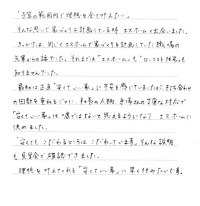 「予算の範囲内で理想を全て叶えたい。」
そんな思いで家づくりを計画している時 エスホームと出会いました。
きっかけは、同じくエスホームで家づくりを計画していた職場の
先輩からの話でした。それまでは"エスホーム"も"ローコスト住宅"も
知りませんでした。
最初は正直"安くていい家"に不安を感じていましたが、打ち合わせ
の回数を重ねるごとに、和歌の人柄、現場の丁寧な対応が
"安くていい家"は嘘ではないと思えるようになり、エスホームに
決めました。
「安くても、こだわるところはこだわっています。」そんな説明
も見学会で確認できました。
理想を叶えてくれる"安くていい家"に早く住みたいです。